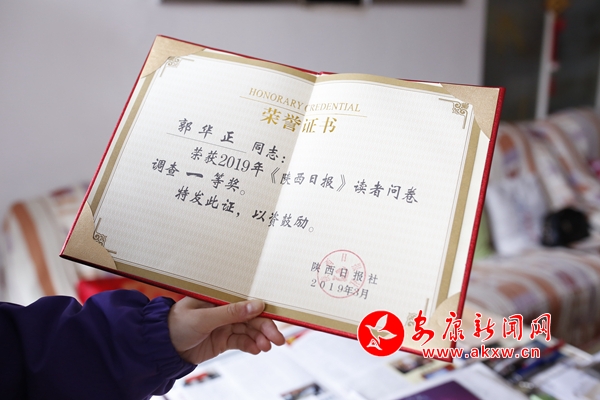 HONORARY CREDENTIAL
荣誉证书
郭华正 同志：
荣获2019年《陕西日报》读者问卷
调查一等奖。
特发此证，以资鼓励。
陕西日报社
2019年3月
安康新闻网
www.akxw.cn